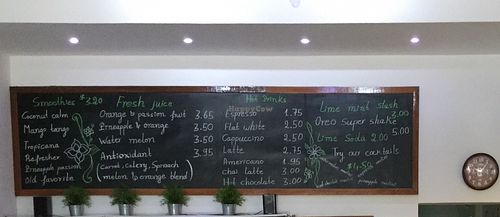 Smoothies $3.20
Coconut calm
Mango tango
Tropicana
Refresher
Pineapple passion
Old favorite
Fresh juice
Orange & passion fruit 3.65
Pineapple & orange 3.50
Water melon 3.50
Antioxidant 3.95
(Carrot, Celery, Spinach)
(melon & orange blend)
Hot Drinks
Espresso 1.75
Flat white 2.50
Cappuccino 2.50
Latte 2.75
Americano 1.95
Chai latte 3.00
Hot chocolate 3.00
Lime mint slush
3.00
Oreo Super shake
5.00
Lime Soda 2.00
Try our cocktails
$4.50
HappyCow